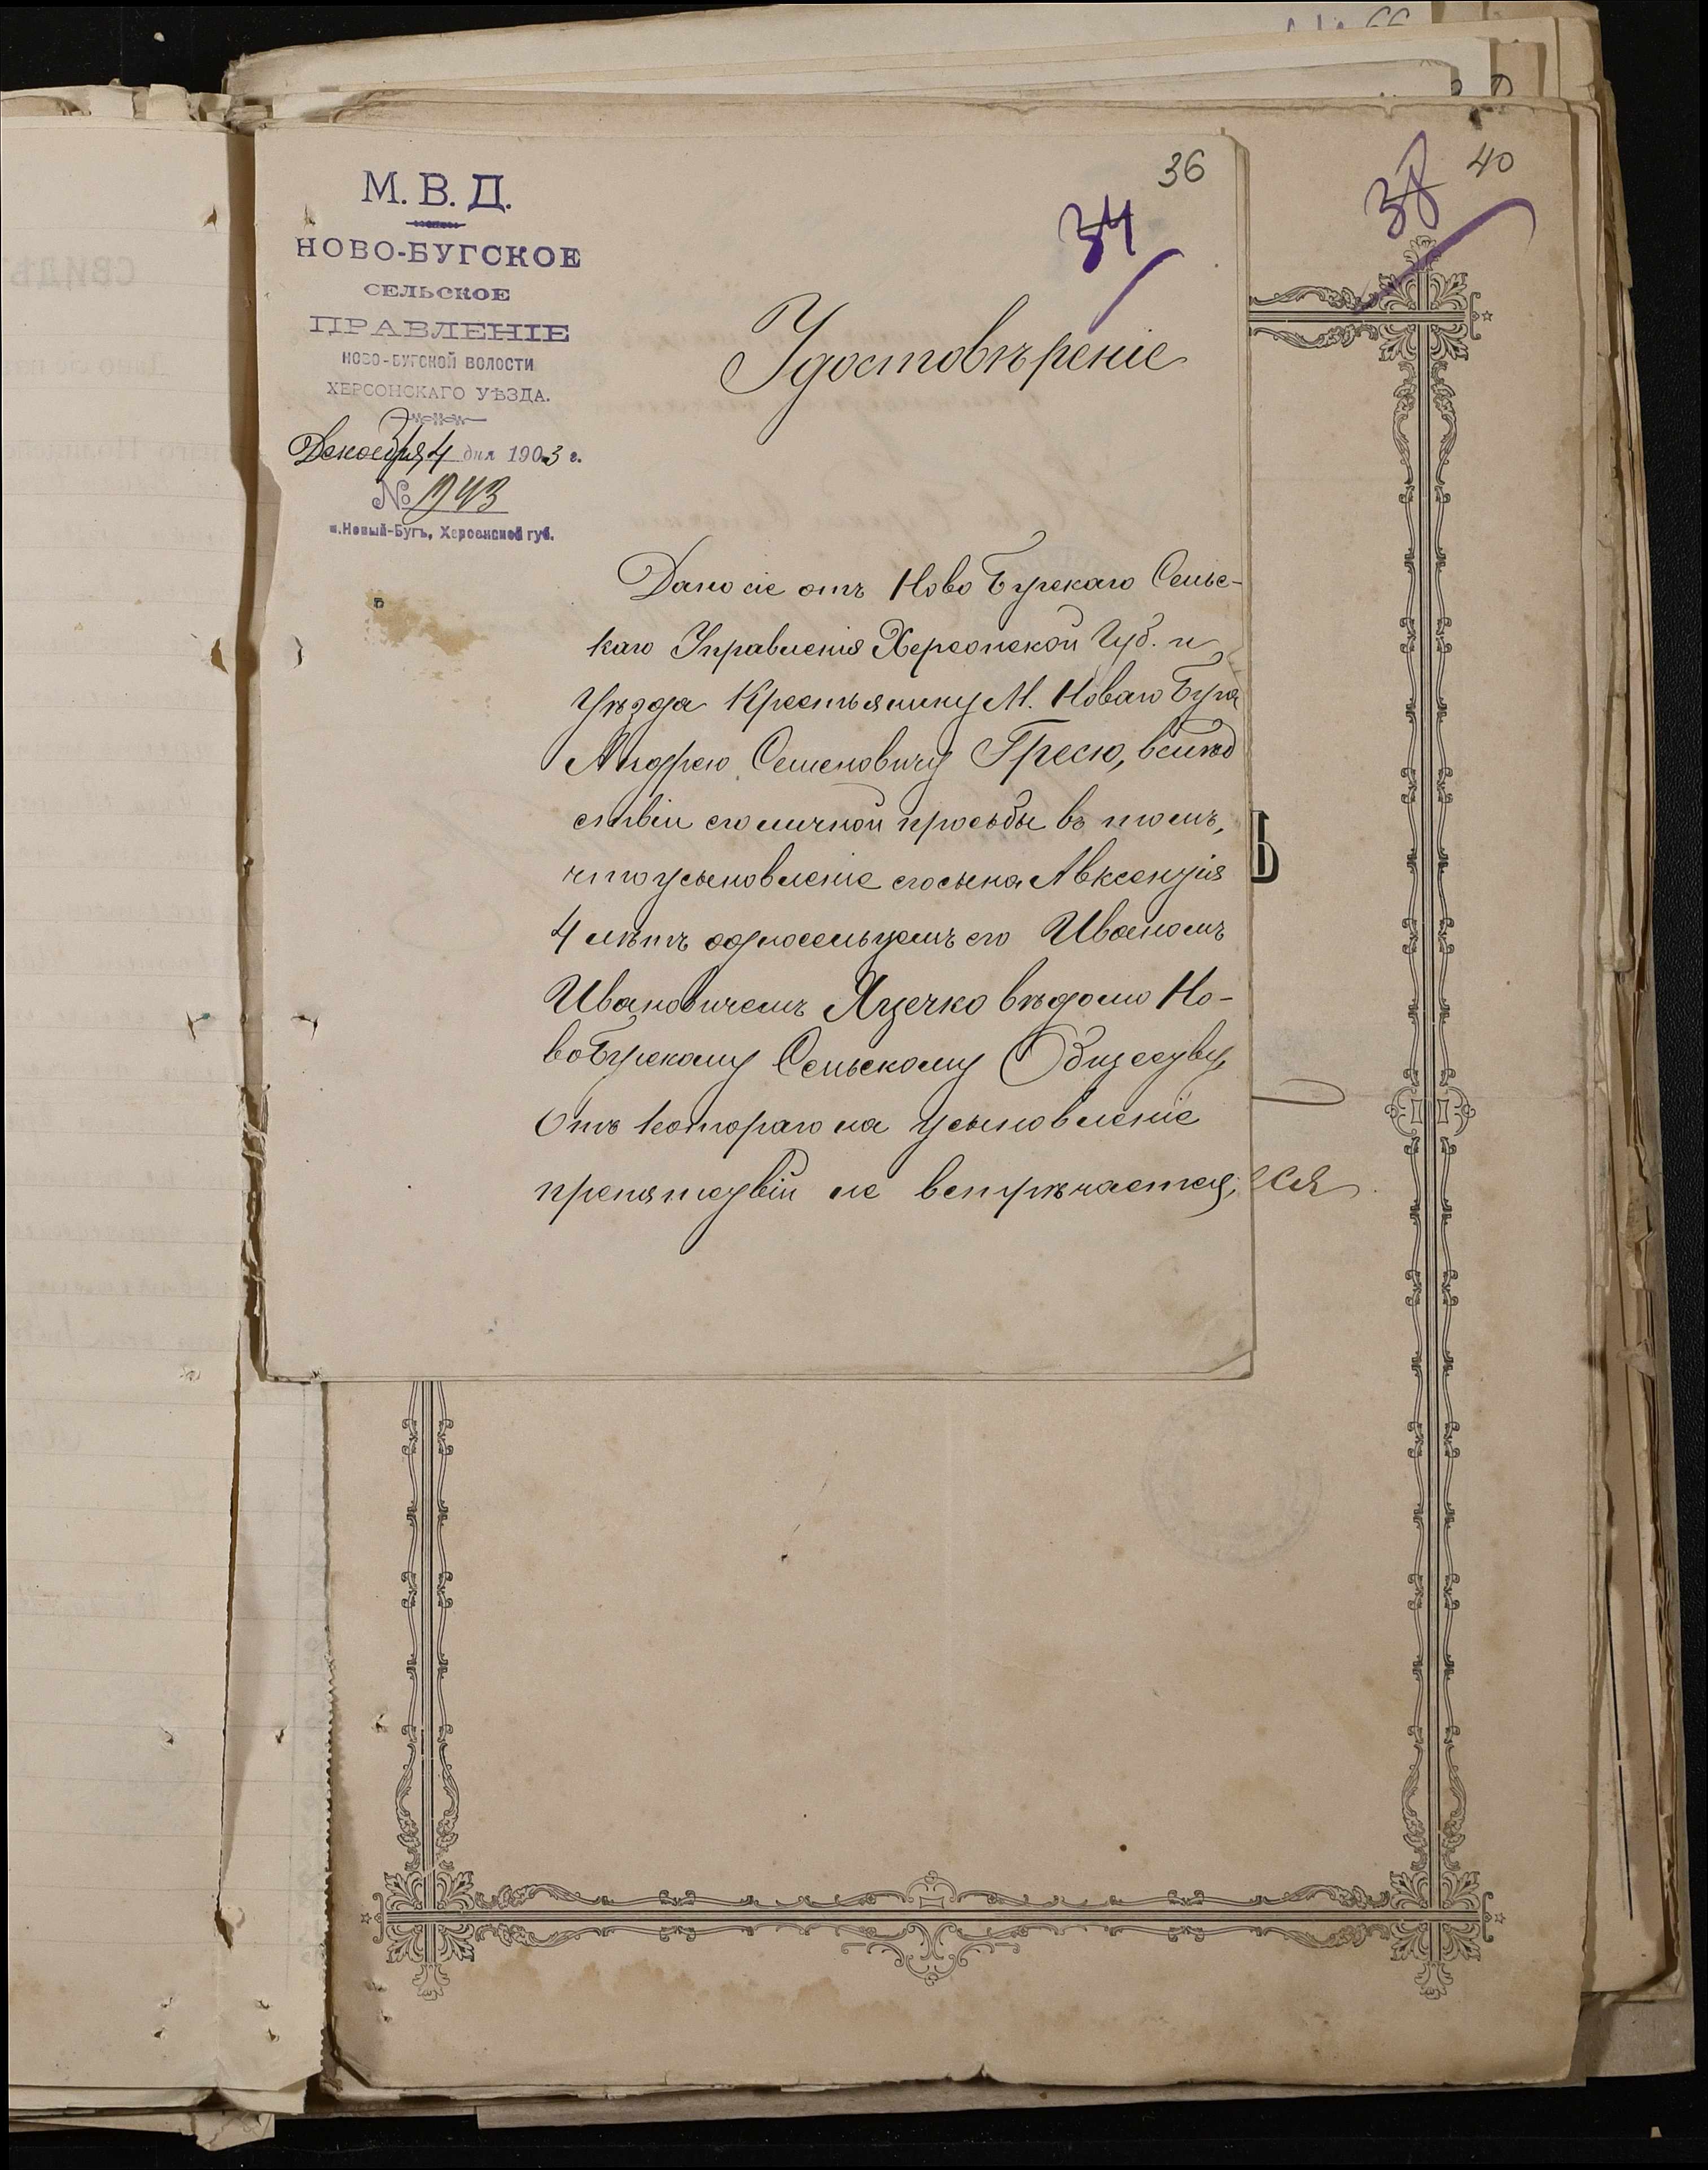 36
34
38
40
М. В. Д.
НОВО-БУГСКОЕ
СЕЛЬСКОЕ
ПРАВЛЕНІЕ
НОВО-БУГСКОЙ ВОЛОСТИ
ХЕРСОНСКАГО УѢЗДА.
Декабря 4 дня 1903 г.
№ 1943
м.Новый-Бугъ, Херсонской губ.
Удостовѣреніе
Дано сіе отъ Ново Бугскаго Сельс-
каго Управленія Херсонской Губ. и
Уѣзда Крестьянину М. Новаго Буга
Андрею Семеновичу Гресю, вслѣд
ствіи его личной просьбы въ томъ,
что усыновленіе его сына Авксентія
4 лѣтъ односельцемъ его Иваномъ
Ивановичемъ Яценко вѣдомо Но-
во Бугскому Сельскому Обществу,
Отъ котораго на усыновленіе
препятствій не встрѣчается,